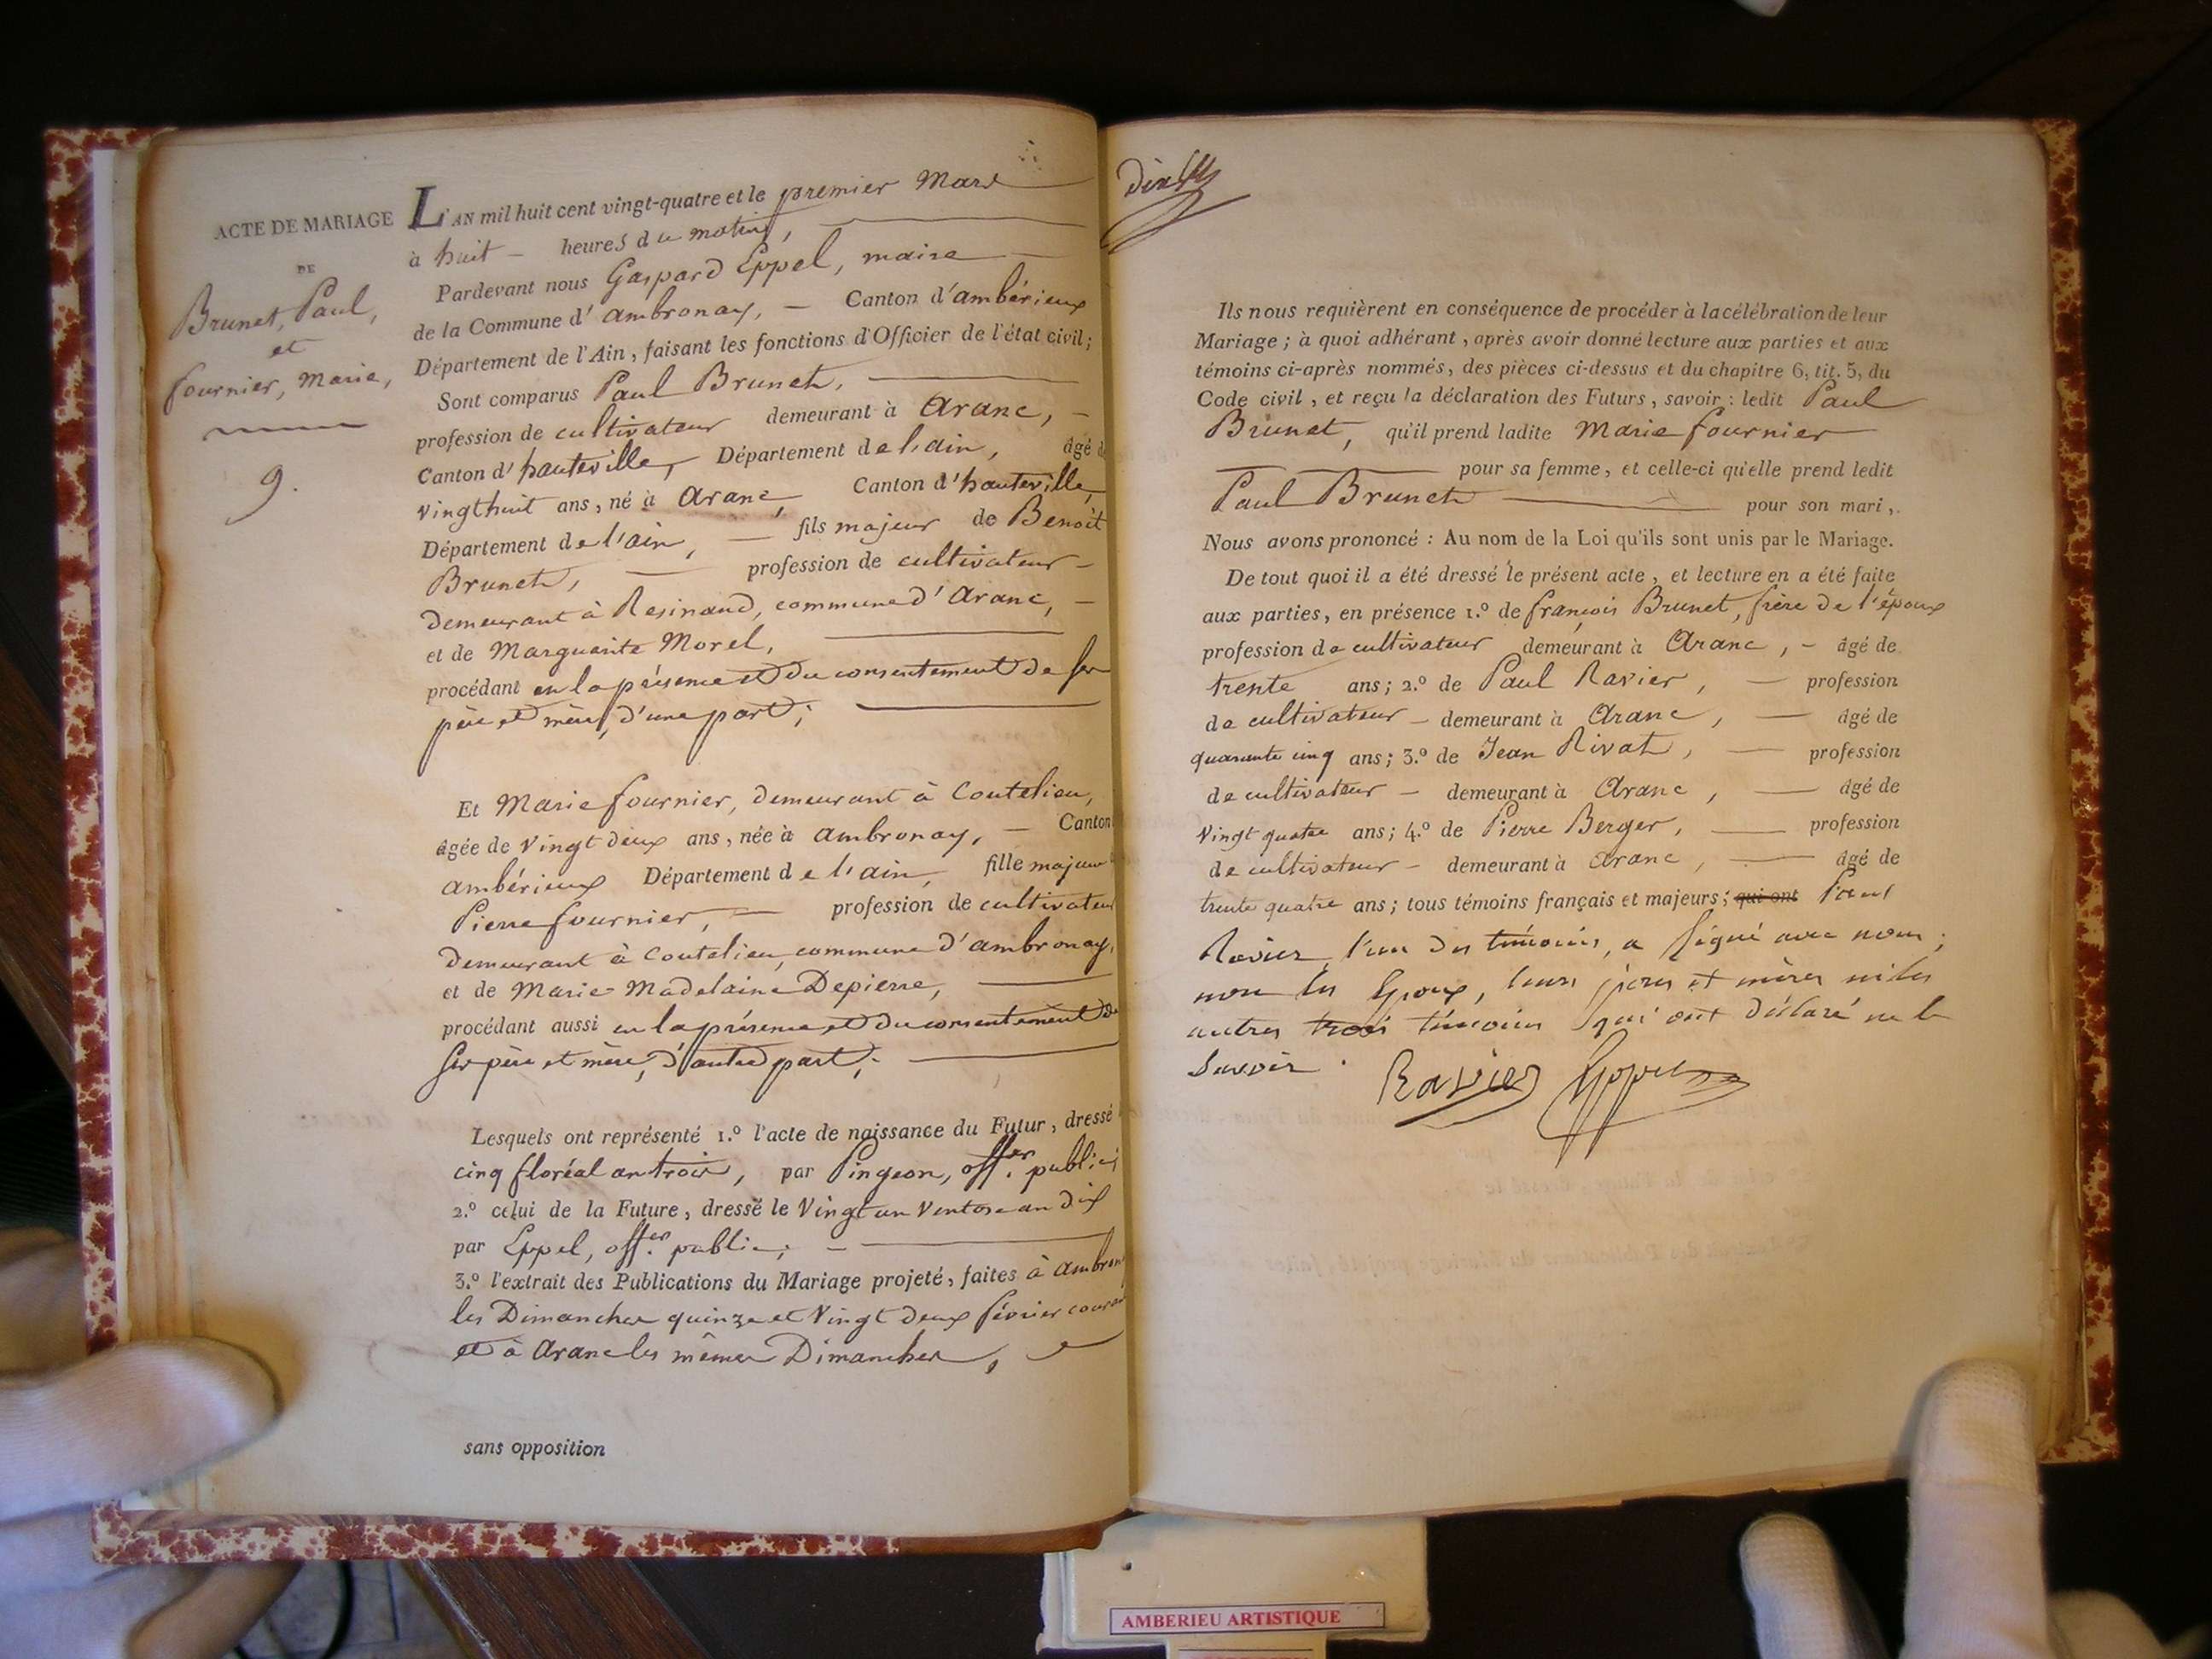 ACTE DE MARIAGE
DE
Brunet, Paul,
et
fournier, Marie,
9.
L'AN mil huit cent vingt-quatre et le premier Mars
à huit - heures du matin,
Pardevant nous Gaspard Eppel, maire
de la Commune d'ambronay, - Canton d'ambérieux
Département de l'Ain, faisant les fonctions d'Officier de l'état civil;
Sont comparus Paul Brunet,
profession de cultivateur demeurant à Aranc, -
Canton d'hauteville, Département de l'ain, âgé de
vingthuit ans, né à Aranc, Canton d'hauteville,
Département de l'ain, - fils majeur de Benoit
Brunet, - profession de cultivateur -
demeurant à Resinand, commune d'Aranc, -
et de Marguerite Morel,
procédant en la présence et du consentement de ses
père et mère, d'une part;
Et Marie fournier, demeurant à Coutelieu,
âgée de Vingt deux ans, née à ambronay, - Canton
ambérieux Département de l'ain, fille majeure
Pierre fournier, - profession de cultivateur
demeurant à Coutelieu, commune d'ambronay,
et de Marie Madelaine Depierre,
procédant aussi en la présence et du consentement de
ses père et mère, d'autre part;
Lesquels ont représenté 1.º l'acte de naissance du Futur, dressé
cinq floréal an trois, par Pingeon, off.er public;
2.º celui de la Future, dressé le Vingt un Ventose an dix
par Eppel, off.er public; -
3.º l'extrait des Publications du Mariage projeté, faites à ambron
les Dimanches quinze et Vingt deux février courant
et à Aranc les mêmes Dimanches,
sans opposition
Ils nous requièrent en conséquence de procéder à la célébration de leur
Mariage; à quoi adhérant, après avoir donné lecture aux parties et aux
témoins ci-après nommés, des pièces ci-dessus et du chapitre 6, tit. 5, du
Code civil, et reçu la déclaration des Futurs, savoir: ledit Paul
Brunet, qu'il prend ladite Marie fournier
pour sa femme, et celle-ci qu'elle prend ledit
Paul Brunet pour son mari,
Nous avons prononcé: Au nom de la Loi qu'ils sont unis par le Mariage.
De tout quoi il a été dressé le présent acte, et lecture en a été faite
aux parties, en présence 1.º de françois Brunet, frère de l'époux
profession de cultivateur demeurant à Aranc, - âgé de
trente ans; 2.º de Paul Ravier, - profession
de cultivateur - demeurant à Aranc, - âgé de
quarante cinq ans; 3.º de Jean Rivat, - profession
de cultivateur - demeurant à Aranc, - âgé de
Vingt quatre ans; 4.º de Pierre Berger, - profession
de cultivateur - demeurant à Aranc, - âgé de
trente quatre ans; tous témoins français et majeurs; qui ont Paul
Ravier, l'un des témoins, a signé avec nous;
non les Epoux, leurs pères et mères ni les
autres trois témoins qui ont déclaré ne le
Savoir.
Ravier Eppel
AMBERIEU ARTISTIQUE